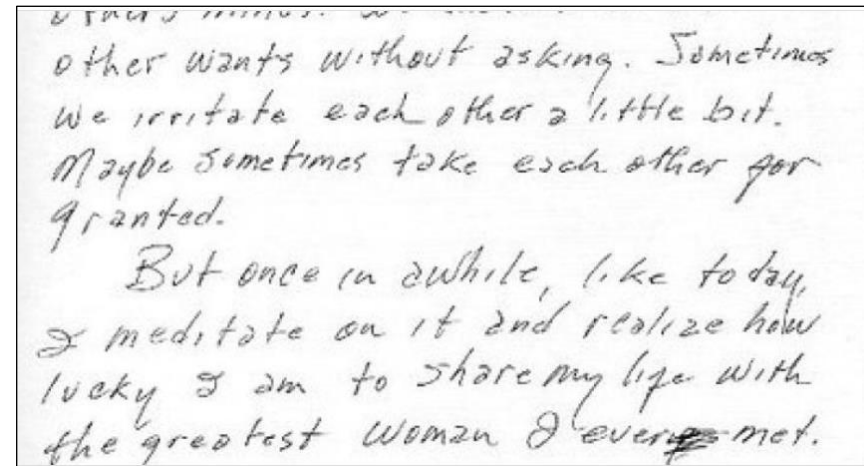 other wants without asking. Sometimes
we irritate each other a little bit.
Maybe sometimes take each other for
granted.
But once in awhile, like today,
I meditate on it and realize how
lucky I am to share my life with
the greatest woman I ever met.